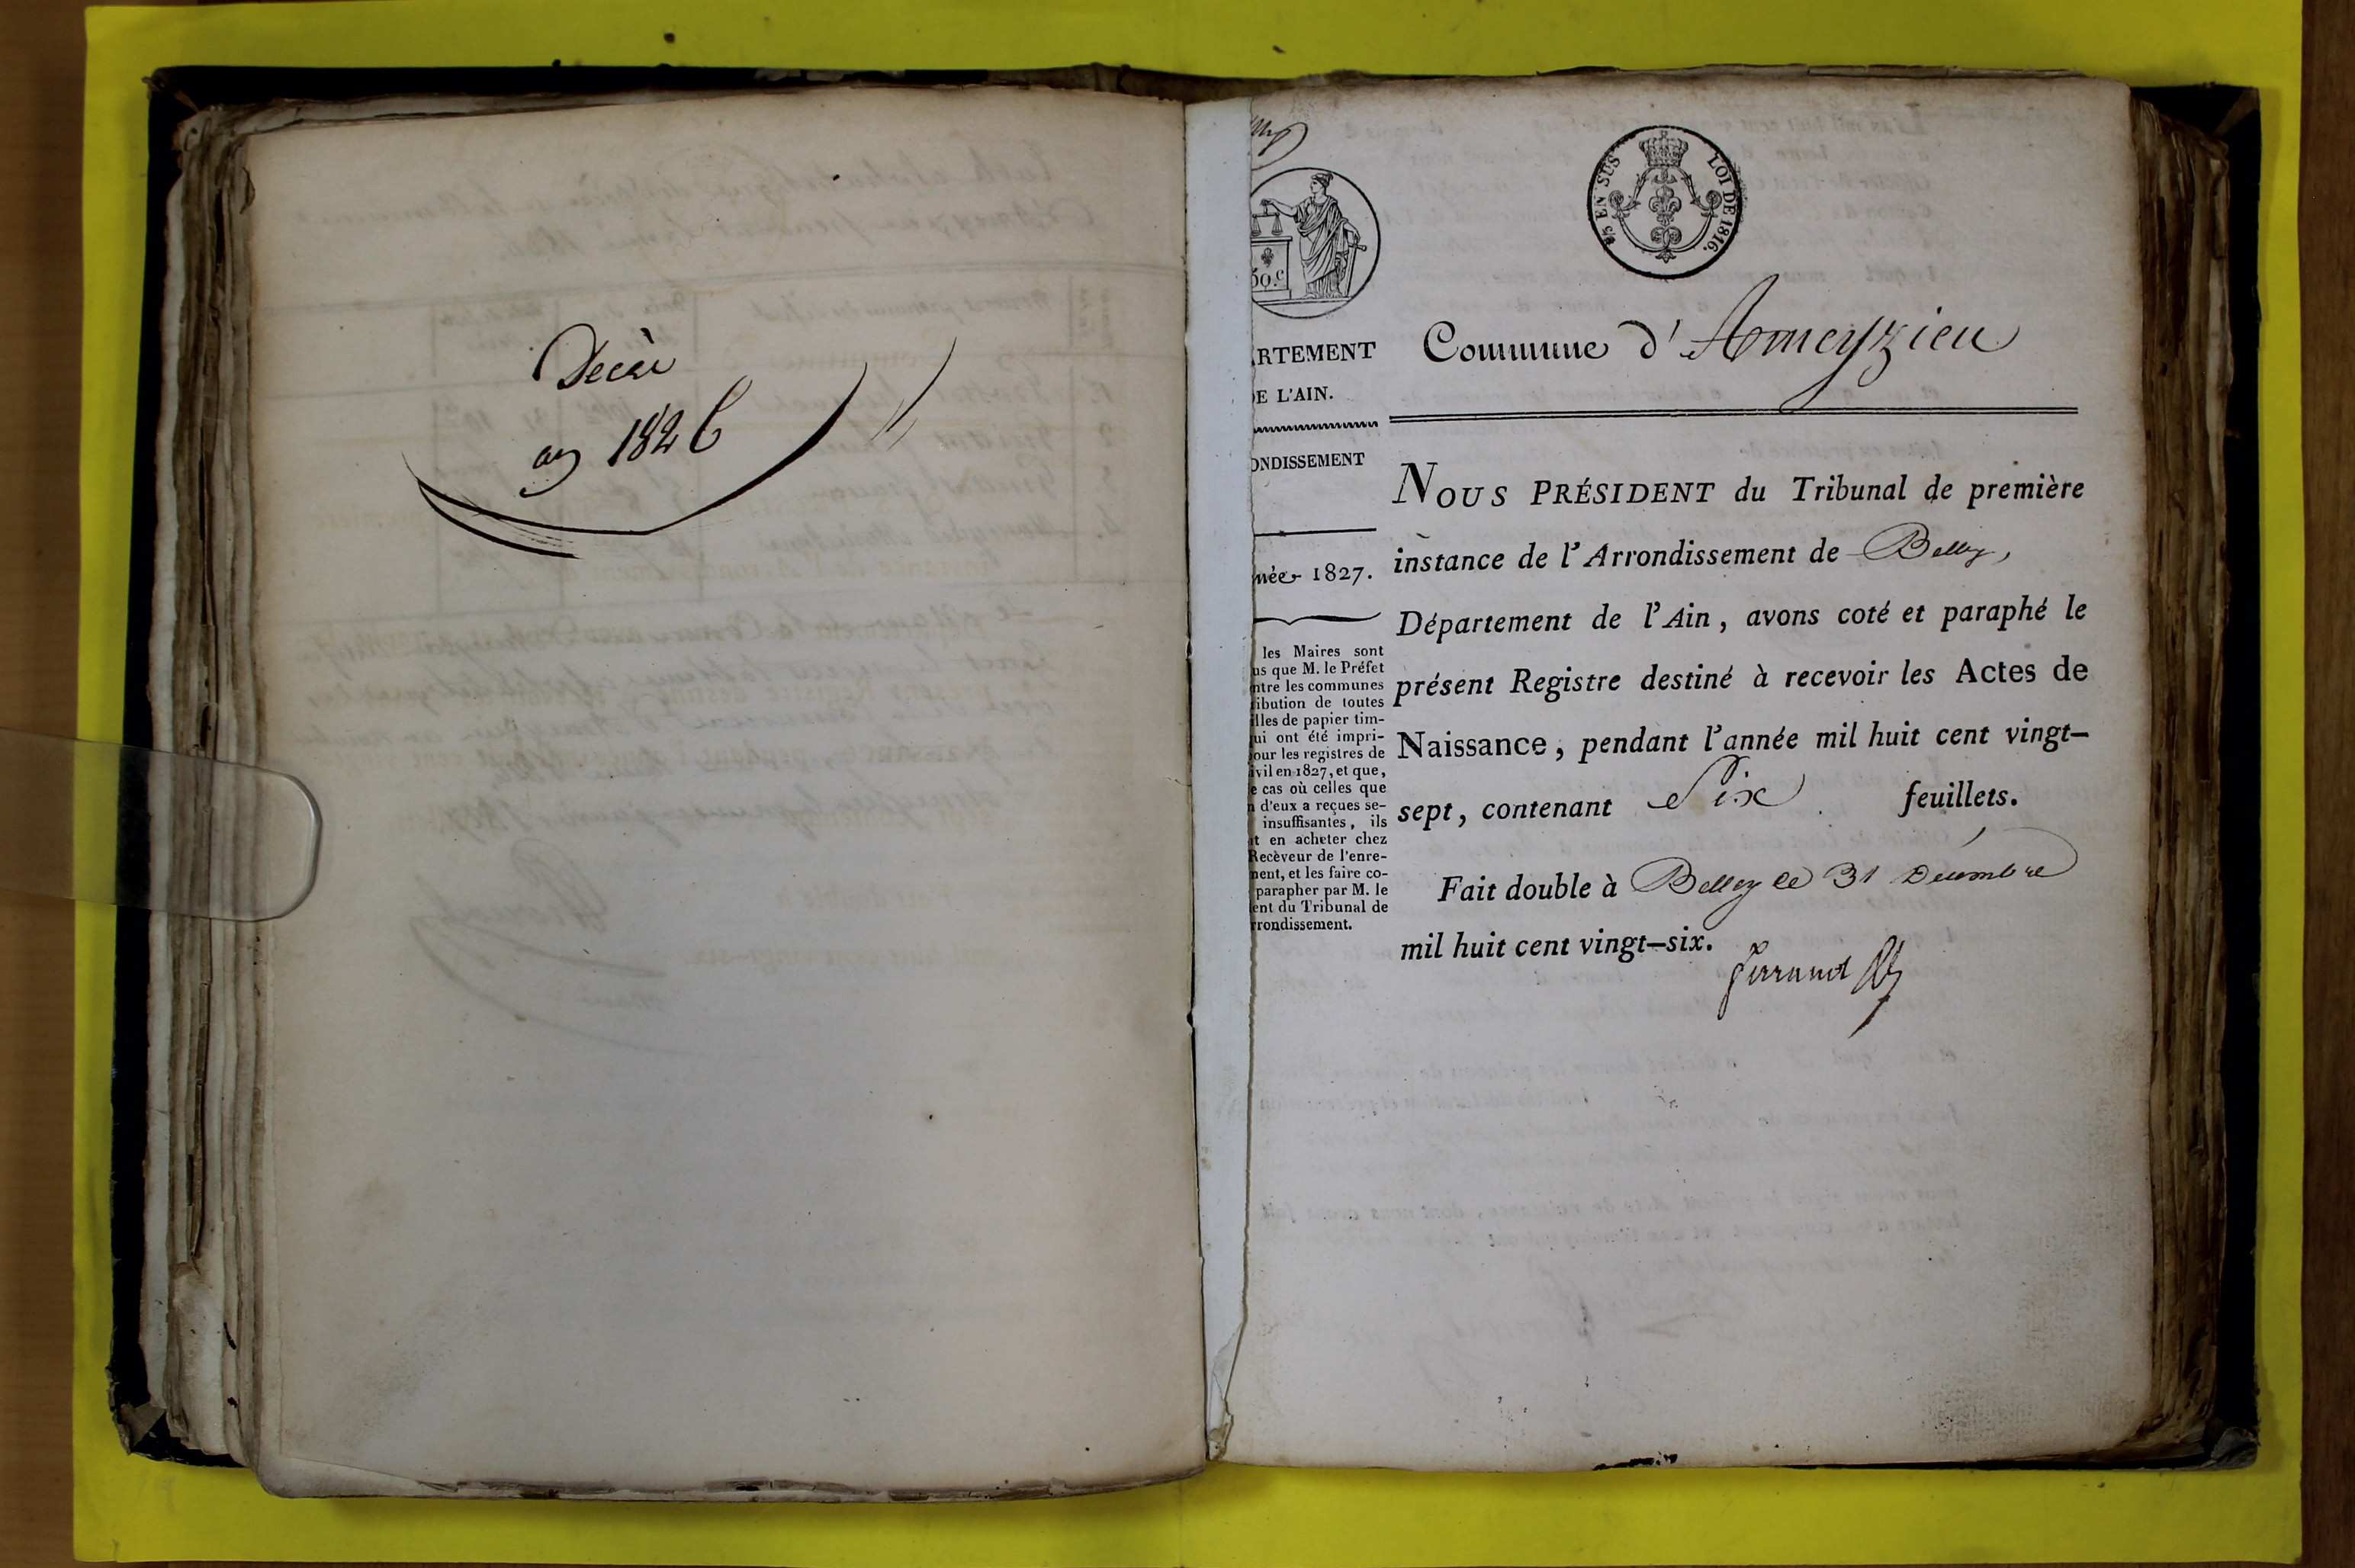 Décès
an 1826
EN SUS
LOI DE 1816.
50.c
RTEMENT
DE L'AIN.
ONDISSEMENT
née 1827.
les Maires sont
us que M. le Préfet
ntre les communes
ribution de toutes
lles de papier tim-
ui ont été impri-
our les registres de
ivil en 1827, et que,
e cas où celles que
n d'eux a reçues se-
insuffisantes, ils
t en acheter chez
Recèveur de l'enre-
ment, et les faire co-
parapher par M. le
ent du Tribunal de
rrondissement.
Commune d'Ameyzieu
NOUS PRÉSIDENT du Tribunal de première
instance de l'Arrondissement de Belley,
Département de l'Ain, avons coté et paraphé le
présent Registre destiné à recevoir les Actes de
Naissance, pendant l'année mil huit cent vingt-
sept, contenant Six feuillets.
Fait double à Belley le 31 Décembre
mil huit cent vingt-six.